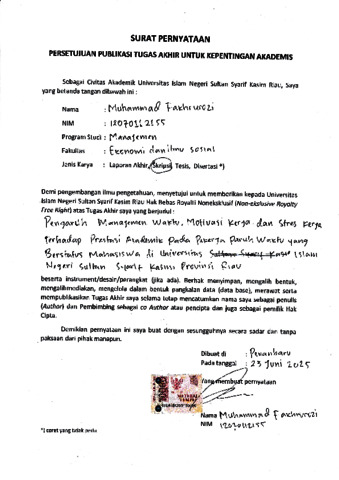 SURAT PERNYATAAN
PERSETUJUAN PUBLIKASI TUGAS AKHIR UNTUK KEPENTINGAN AKADEMIS
Sebagai Civitas Akademik Universitas Islam Negeri Sultan Syarif Kasim Riau, Saya
yang bertanda tangan dibawah ini :
Nama : Muhammad Fakhrurozi
NIM : 12070112155
Program Studi : Manajemen
Fakultas : Ekonomi dan ilmu sosial
Jenis Karya : Laporan Akhir, Skripsi, Tesis, Disertasi *)
Demi pengembangan ilmu pengetahuan, menyetujui untuk memberikan kepada Universitas
Islam Negeri Sultan Syarif Kasim Riau Hak Bebas Royalti Noneksklusif (Non-eksclusive Royalty
Free Right) atas Tugas Akhir saya yang berjudul :
Pengaruh Manajemen Waktu, Motivasi Kerja dan Stres Kerja
Terhadap Prestasi Akademik pada Pekerja Paruh Waktu yang
Berstatus Mahasiswa di Universitas Islam
Negeri Sultan Syarif Kasim Provinsi Riau
beserta instrument/desain/perangkat (jika ada). Berhak menyimpan, mengalih bentuk,
mengalihmediakan, mengelola dalam bentuk pangkalan data (data base), merawat serta
mempublikasikan Tugas Akhir saya selama tetap mencatumkan nama saya sebagai penulis
(Author) dan Pembimbing sebagai co Author atau pencipta dan juga sebagai pemilik Hak
Cipta.
Demikian pernyataan ini saya buat dengan sesungguhnya secara sadar dan tanpa
paksaan dari pihak manapun.
Dibuat di : Pekanbaru
Pada tanggal : 23 Juni 2025
Yang membuat pernyataan
10000
METERAI
TEMPEL
Nama : Muhammad Fakhrurozi
NIM : 12070112155
*) coret yang tidak perlu